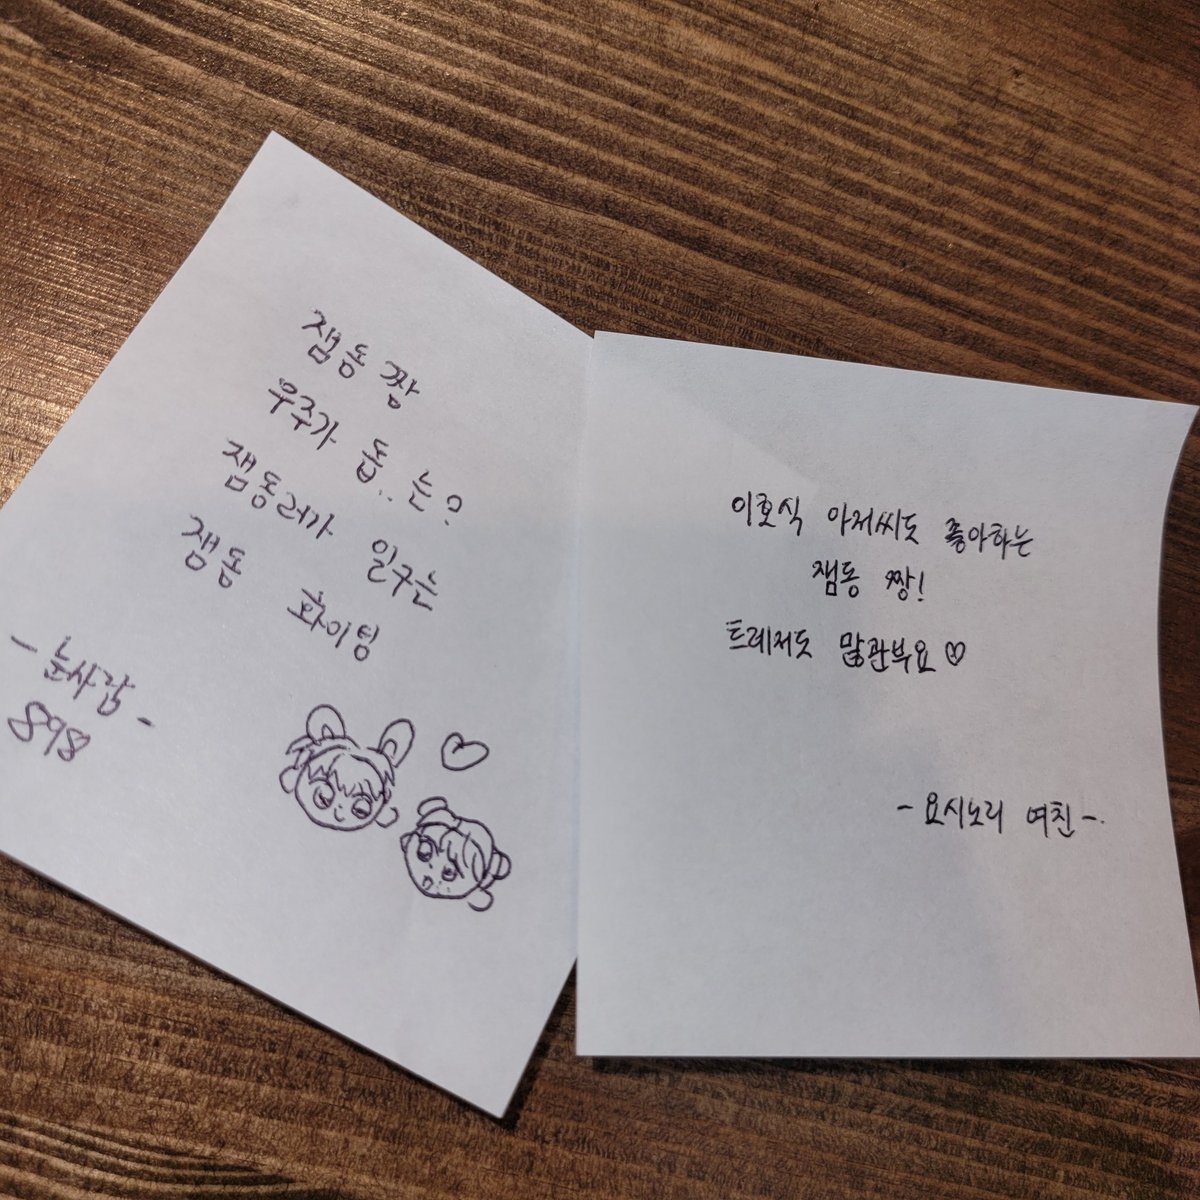 잼동 짬
우주가 돕..는?
잼동러가 일구는
잼동 화이팅
- 눈사람 -
898
이호식 아저씨도 좋아하는
잼동 짱!
트레저도 많관부요♡
- 요시노리 여친 -